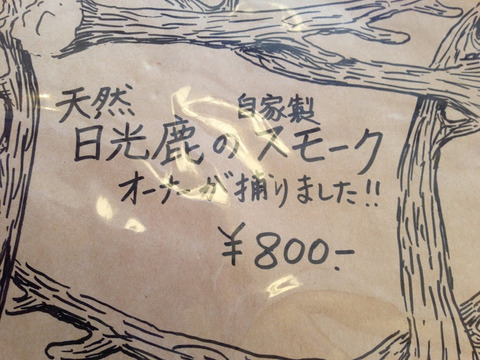 天然 自家製
日光鹿のスモーク
オーナーが捕りました!!
¥800.-